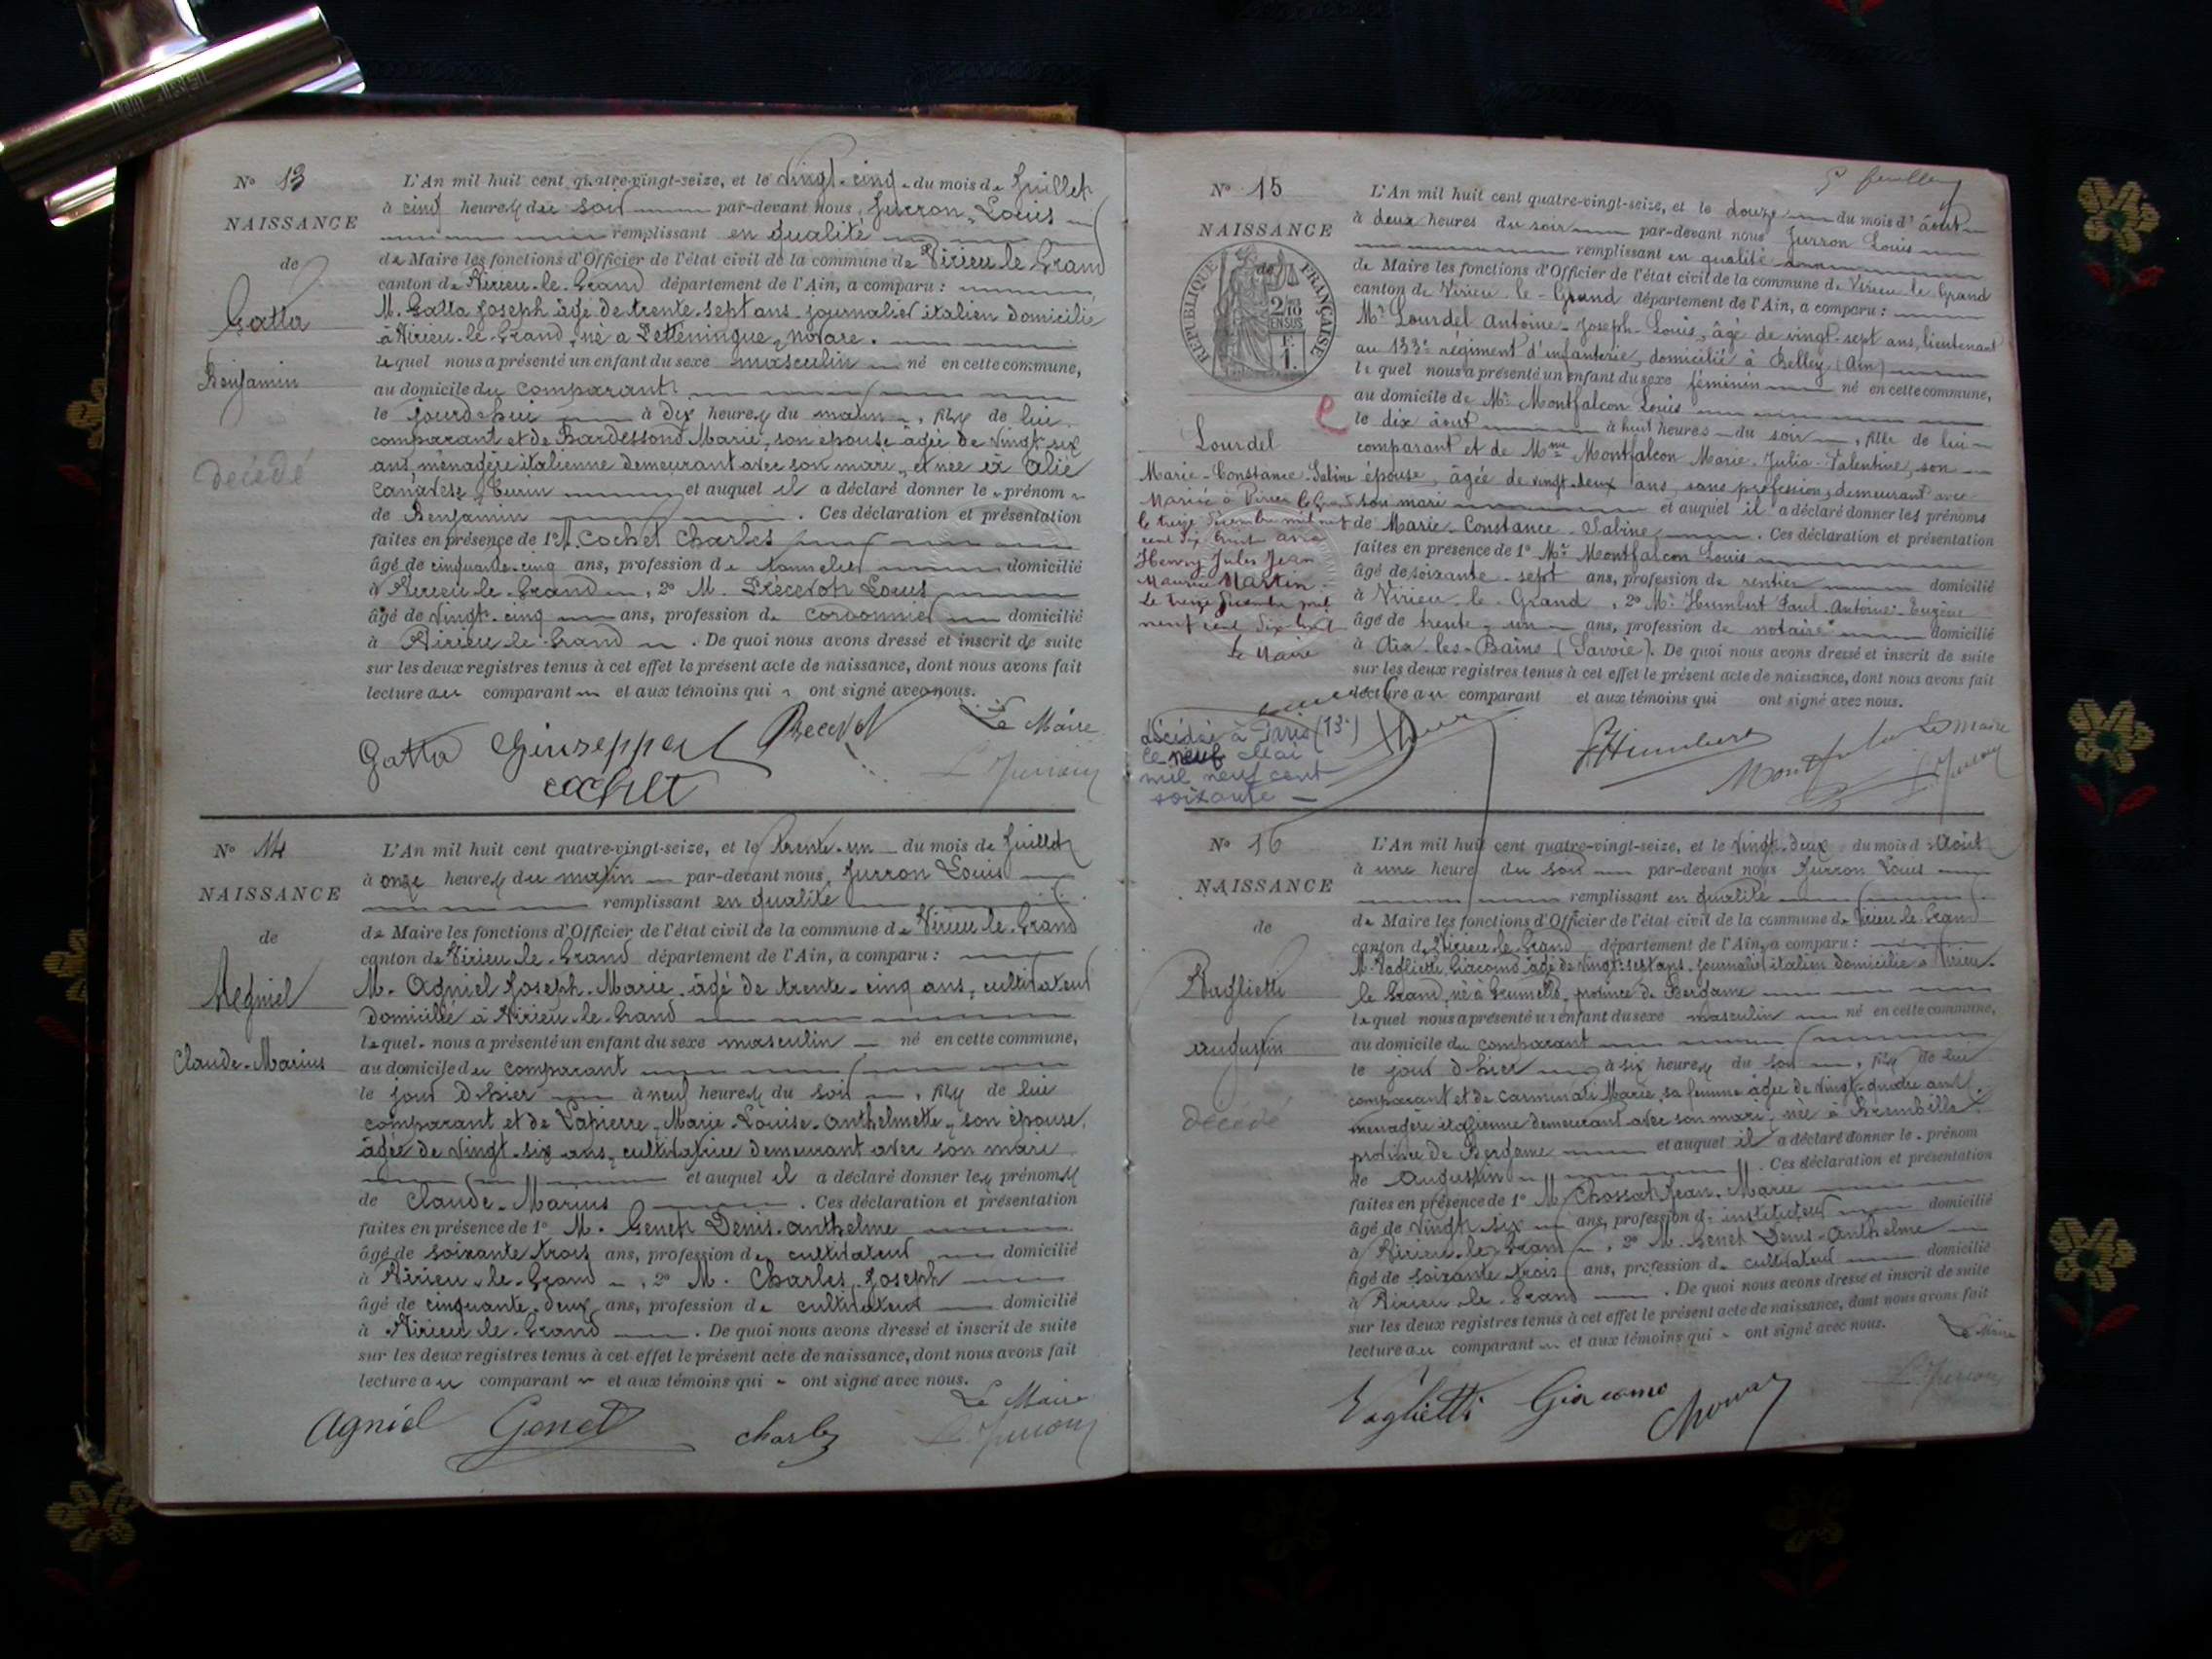 N° 13
NAISSANCE
de
Gatta
Benjamin
décédé
L'An mil huit cent quatre-vingt-seize, et le vingt-cinq du mois de Juillet
à cinq heures du soir par-devant nous, Jurron Louis
remplissant en qualité
de Maire les fonctions d'Officier de l'état civil de la commune de Virieu le Grand
canton de Virieu-le-Grand département de l'Ain, a comparu :
M. Gatta Joseph âgé de trente-sept ans journalier italien domicilié
à Virieu-le-Grand, né à Novare.
lequel nous a présenté un enfant du sexe masculin né en cette commune,
au domicile du comparant
le jourd'hui à dix heures du matin, fils de lui
comparant et de Bardessond Marie, son épouse âgée de vingt-six
ans, ménagère italienne demeurant avec son mari, et née à Alié
Canavese, Turin et auquel il a déclaré donner le prénom
de Benjamin . Ces déclaration et présentation
faites en présence de 1° M. Cochet Charles
âgé de cinquante-cinq ans, profession de tonnelier domicilié
à Virieu-le-Grand, 2° M. Louis
âgé de vingt-cinq ans, profession de cordonnier domicilié
à Virieu-le-Grand . De quoi nous avons dressé et inscrit de suite
sur les deux registres tenus à cet effet le présent acte de naissance, dont nous avons fait
lecture au comparant et aux témoins qui ont signé avec nous.
Le Maire
Gatta Giuseppe
Cochet
L. Jurron
N° 14
NAISSANCE
de
Agniel
Claude-Marius
L'An mil huit cent quatre-vingt-seize, et le trente-un du mois de Juillet
à onze heures du matin par-devant nous, Jurron Louis
remplissant en qualité
de Maire les fonctions d'Officier de l'état civil de la commune de Virieu-le-Grand
canton de Virieu-le-Grand département de l'Ain, a comparu :
M. Agniel Joseph-Marie, âgé de trente-cinq ans, cultivateur
domicilié à Virieu-le-Grand
lequel nous a présenté un enfant du sexe masculin né en cette commune,
au domicile du comparant
le jour d'hier à neuf heures du soir, fils de lui
comparant et de Lapierre, Marie-Louise-Anthelmette, son épouse,
âgée de vingt-six ans, cultivatrice demeurant avec son mari
et auquel il a déclaré donner les prénoms
de Claude-Marius . Ces déclaration et présentation
faites en présence de 1° M. Genet Denis-Anthelme
âgé de soixante trois ans, profession de cultivateur domicilié
à Virieu-le-Grand, 2° M. Charles Joseph
âgé de cinquante-deux ans, profession de cultivateur domicilié
à Virieu-le-Grand . De quoi nous avons dressé et inscrit de suite
sur les deux registres tenus à cet effet le présent acte de naissance, dont nous avons fait
lecture au comparant et aux témoins qui ont signé avec nous.
Le Maire
Agniel Genet Charles L. Jurron
N° 15
NAISSANCE
de
RÉPUBLIQUE FRANÇAISE
2/10
EN SUS
F
1.
Lourdel
Marie-Constance-Sabine
Mariée à Virieu le Grand
le treize Décembre mil neuf
cent dix huit avec
Henry Jules Jean
Maurice Martin.
Le treize Décembre mil
neuf cent dix huit
Le Maire
décédée à Paris (13e)
le neuf Mai
mil neuf cent
soixante
L'An mil huit cent quatre-vingt-seize, et le douze du mois d'août
à deux heures du soir par-devant nous Jurron Louis
remplissant en qualité
de Maire les fonctions d'Officier de l'état civil de la commune de Virieu le Grand
canton de Virieu-le-Grand département de l'Ain, a comparu :
Mr Lourdel Antoine-Joseph-Louis, âgé de vingt-sept ans, lieutenant
au 133e régiment d'infanterie, domicilié à Belley (Ain)
lequel nous a présenté un enfant du sexe féminin né en cette commune,
au domicile de Mr Montfalcon Louis
le dix août à huit heures du soir, fille de lui
comparant et de Mme Montfalcon Marie-Julia-Valentine, son
épouse, âgée de vingt-deux ans, sans profession, demeurant avec
son mari et auquel il a déclaré donner les prénoms
de Marie-Constance-Sabine . Ces déclaration et présentation
faites en présence de 1° Mr Montfalcon Louis
âgé de soixante-sept ans, profession de rentier domicilié
à Virieu-le-Grand, 2° Mr Humbert Paul-Antoine-Eugène
âgé de trente-un ans, profession de notaire domicilié
à Aix-les-Bains (Savoie). De quoi nous avons dressé et inscrit de suite
sur les deux registres tenus à cet effet le présent acte de naissance, dont nous avons fait
lecture au comparant et aux témoins qui ont signé avec nous.
Le Maire
Humbert L. Jurron
N° 16
NAISSANCE
de
Vaglietti
Augustin
Décédé
L'An mil huit cent quatre-vingt-seize, et le vingt-deux du mois d'Août
à une heure du soir par-devant nous Jurron Louis
remplissant en qualité
de Maire les fonctions d'Officier de l'état civil de la commune de Virieu-le-Grand
canton de Virieu-le-Grand département de l'Ain, a comparu :
M. Vaglietti Giacomo âgé de vingt-sept ans, journalier italien domicilié à Virieu-
le Grand, né à Grumello, province de Bergame
lequel nous a présenté un enfant du sexe masculin né en cette commune,
au domicile du comparant
le jour d'hier à six heures du soir, fils de lui
comparant et de Carminati Marie, sa femme âgée de vingt-quatre ans,
ménagère italienne demeurant avec son mari, née à Brembilla
province de Bergame et auquel il a déclaré donner le prénom
de Augustin . Ces déclaration et présentation
faites en présence de 1° M. Chossat Jean-Marie
âgé de vingt six ans, profession d'instituteur domicilié
à Virieu-le-Grand, 2° M. Genet Denis-Anthelme
âgé de soixante trois ans, profession de cultivateur domicilié
à Virieu-le-Grand . De quoi nous avons dressé et inscrit de suite
sur les deux registres tenus à cet effet le présent acte de naissance, dont nous avons fait
lecture au comparant et aux témoins qui ont signé avec nous.
Le Maire
Vaglietti Giacomo
L. Jurron